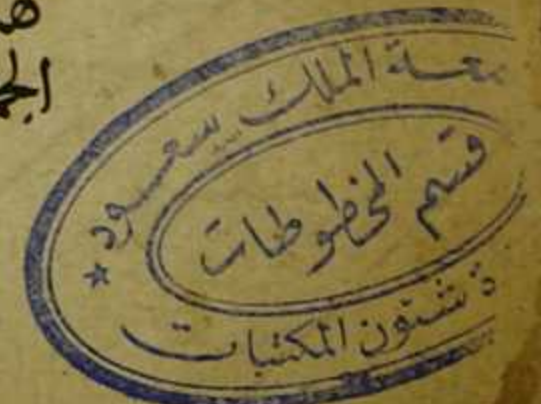 معة الملك سعود
قسم المخطوطات
ة شئون المكتبات